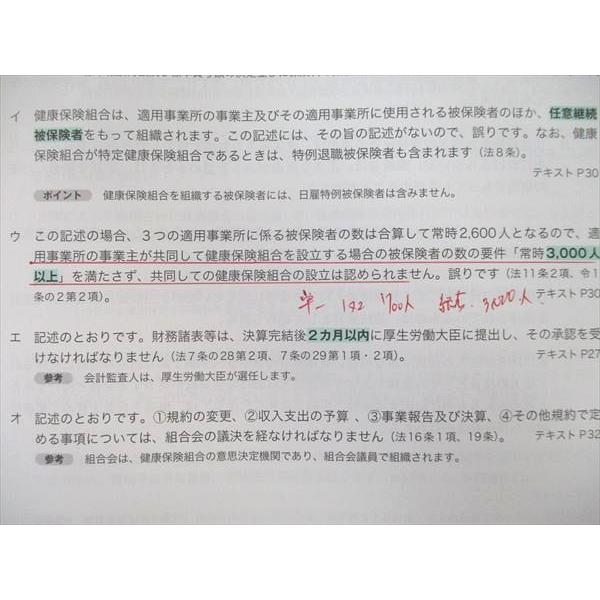 イ 健康保険組合は、適用事業所の事業主及びその適用事業所に使用される被保険者のほか、任意継続
被保険者をもって組織されます。この記述には、その旨の記述がないので、誤りです。なお、健康
保険組合が特定健康保険組合であるときは、特例退職被保険者も含まれます（法８条）。
テキストP30
ポイント 健康保険組合を組織する被保険者には、日雇特例被保険者は含みません。
ウ この記述の場合、３つの適用事業所に係る被保険者の数は合算して常時2,600人となるので、適
用事業所の事業主が共同して健康保険組合を設立する場合の被保険者の数の要件「常時3,000人
以上」を満たさず、共同しての健康保険組合の設立は認められません。誤りです（法11条２項、令１
条の２第２項）。
テキストP30
単一 700人 3,000人
エ 記述のとおりです。財務諸表等は、決算完結後２カ月以内に厚生労働大臣に提出し、その承認を受
けなければなりません（法７条の28第２項、７条の29第１項・２項）。
テキストP27
参考 会計監査人は、厚生労働大臣が選任します。
オ 記述のとおりです。①規約の変更、②収入支出の予算 、③事業報告及び決算、④その他規約で定
める事項については、組合会の議決を経なければなりません（法16条１項、19条）。
テキストP32
参考 組合会は、健康保険組合の意思決定機関であり、組合会議員で組織されます。